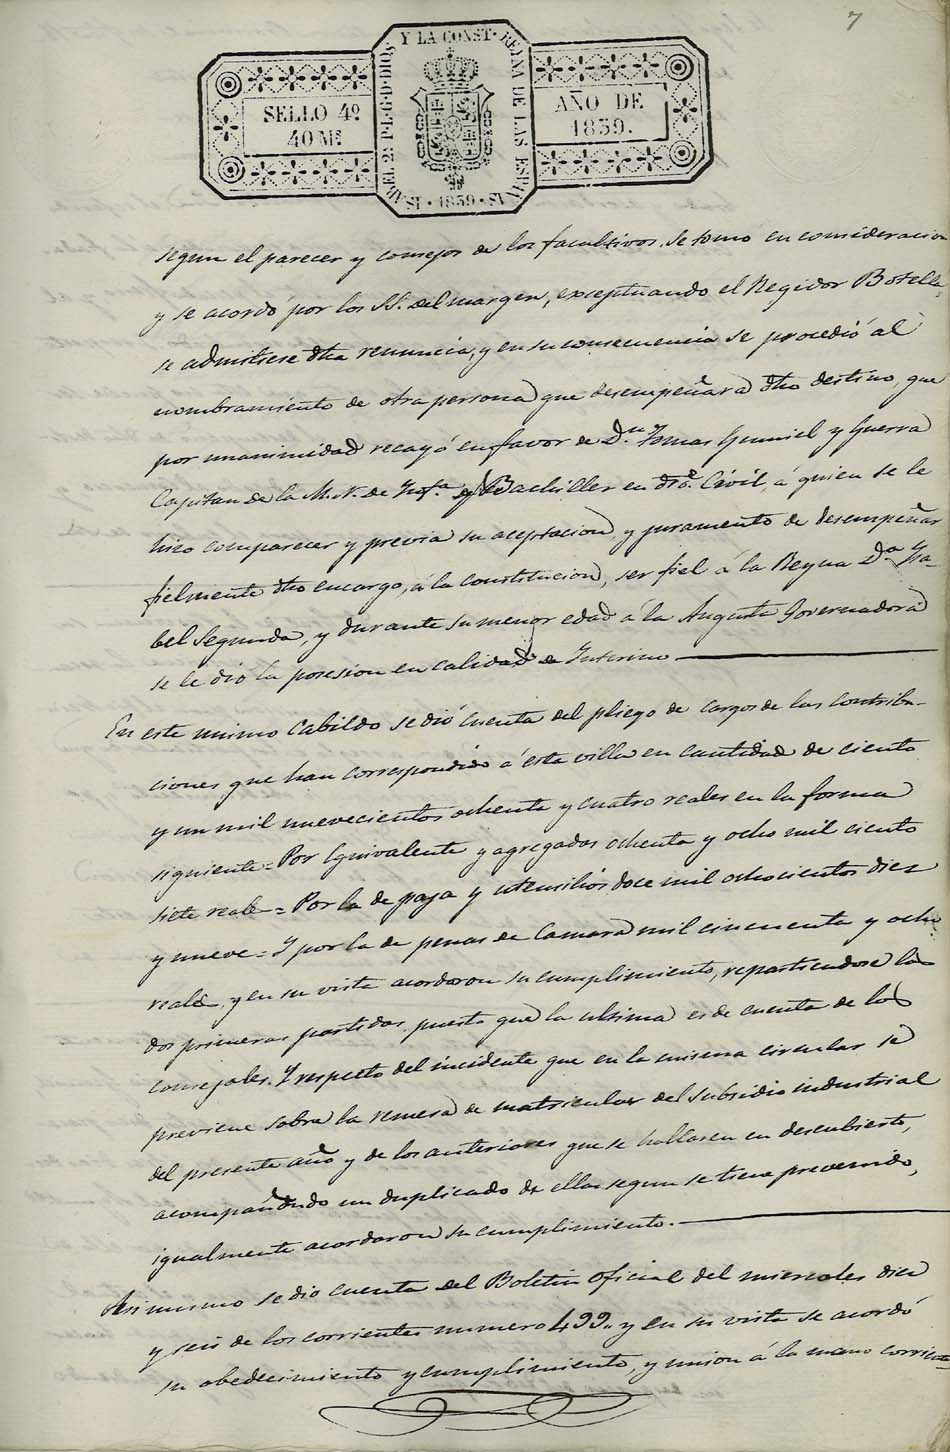 7
Y LA CONST. REYNA DE LAS ESPAÑAS
ISABEL 2ª P.L.G.D.DIOS
SELLO 4º
40 Ms
AÑO DE
1839.
1839
segun el parecer y consejos de los facultivos. Se tomo en consideracion
y se acordó por los SS. del margen, exceptuando el Regidor Botella,
se admitiese dha renuncia, y en su consecuencia se procedió al
nombramiento de otra persona que desempeñara dho destino, que
por unanimidad recayó en favor de Dn. Tomas Gumiel y Guerra
Capitan de la M. N. de Infª. y Bachiller en dro. Civil, á quien se le
hizo comparecer y previa su aceptacion, y juramento de desempeñar
fielmente dho encargo, á la Constitucion, ser fiel á la Reyna Dª. Ysa-
bel Segunda, y durante su menor edad á la Augusta Governadora
se le dió la posesion en calidad de Interino
En este mismo Cabildo se dió cuenta del pliego de cargos de las contribu-
ciones que han correspondido á esta villa en cantidad de ciento
y un mil nuevecientos ochenta y cuatro reales en la forma
siguiente = Por Equivalente y agregadas ochenta y ocho mil ciento
siete reales = Por la de paja y utensilios doce mil ochocientos diez
y nueve = Y por la de penas de Camara mil cincuenta y ocho
reales, y en su vista acordaron su cumplimiento, repartiendose las
dos primeras partidas, puesto que la ultima es de cuenta de los
concejales. Y respecto del incidente que en la misma circular se
previene sobre la remesa de matriculas del subsidio industrial
del presente año y de los anteriores que se hallasen en descubierto,
acompañando un duplicado de ellas segun se tiene prevenido,
igualmente acordaron su cumplimiento.
Asi mismo se dio cuenta del Boletin Oficial del miercoles diez
y seis de los corrientes numero 499,, y en su vista se acordó
su obedecimiento y cumplimiento, y union á la mano corriente